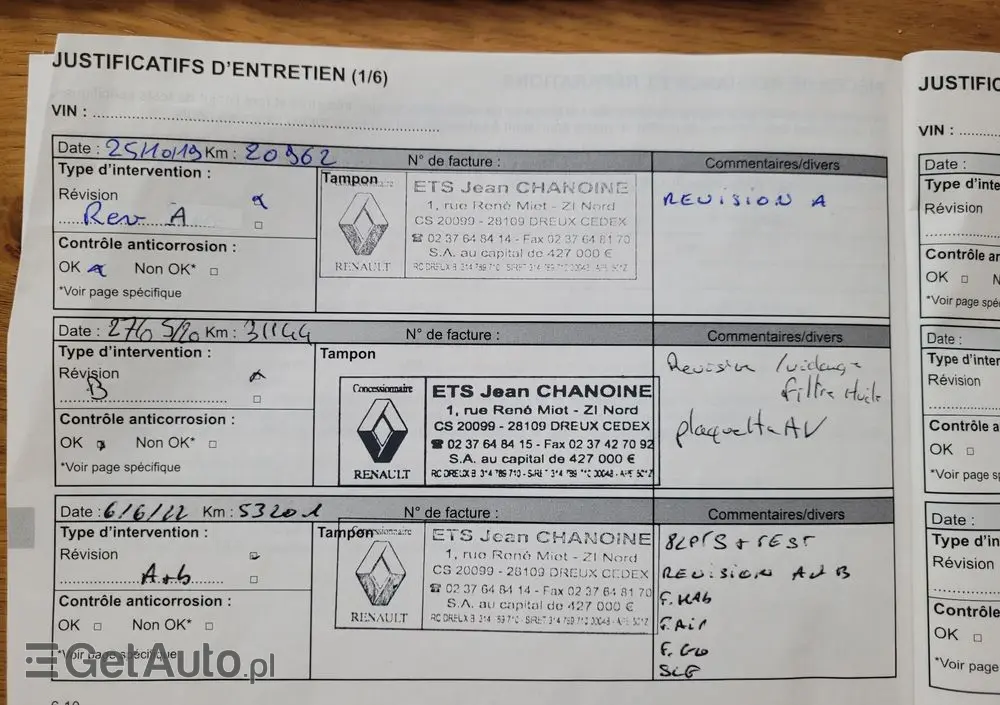 JUSTIFICATIFS D'ENTRETIEN (1/6)
VIN :
Date : 25/10/19 Km : 20962 N° de facture : Commentaires/divers
Type d'intervention :
Révision
Rev A
Contrôle anticorrosion :
OK Non OK*
*Voir page spécifique
Tampon
ETS Jean CHANOINE
1, rue René Miot - ZI Nord
CS 20099 - 28109 DREUX CEDEX
☎ 02 37 64 84 14 - Fax 02 37 64 81 70
S.A. au capital de 427 000 €
RENAULT
REVISION A
Date : Km : 31144 N° de facture : Commentaires/divers
Type d'intervention :
Révision
B
Contrôle anticorrosion :
OK Non OK*
*Voir page spécifique
Tampon
Concessionnaire
ETS Jean CHANOINE
1, rue René Miot - ZI Nord
CS 20099 - 28109 DREUX CEDEX
☎ 02 37 64 84 15 - Fax 02 37 42 70 92
S.A. au capital de 427 000 €
RENAULT
Revision / vidange
filtre Huile
AV
Date : 6/6/22 Km : 53201 N° de facture : Commentaires/divers
Type d'intervention :
Révision
A+b
Contrôle anticorrosion :
OK Non OK*
*Voir page spécifique
Tampon
Concessionnaire
ETS Jean CHANOINE
1, rue René Miot - ZI Nord
CS 20099 - 28109 DREUX CEDEX
☎ 02 37 64 84 14 - Fax 02 37 64 81 70
S.A. au capital de 427 000 €
RENAULT
REVISION A + B
F. HAb
F. Air
GetAuto.pl
JUSTIFIC
VIN :
Date :
Type d'inte
Révision
Contrôle an
OK N
*Voir page spé
Date :
Type d'inter
Révision
Contrôle a
OK
*Voir page s
Date :
Type d'in
Révision
Contrôle
OK
*Voir page